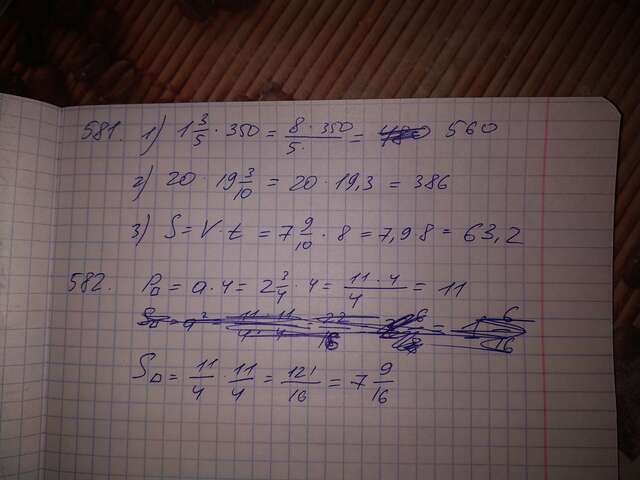 581. 1) 1 3/5 · 350 = 8 · 350 / 5 = 560
2) 20 · 19 3/10 = 20 · 19,3 = 386
3) S = V · t = 7 9/10 · 8 = 7,9 8 = 63,2
582. P□ = a · 4 = 2 3/4 · 4 = 11 · 4 / 4 = 11
S□ = 11/4 11/4 = 121/16 = 7 9/16